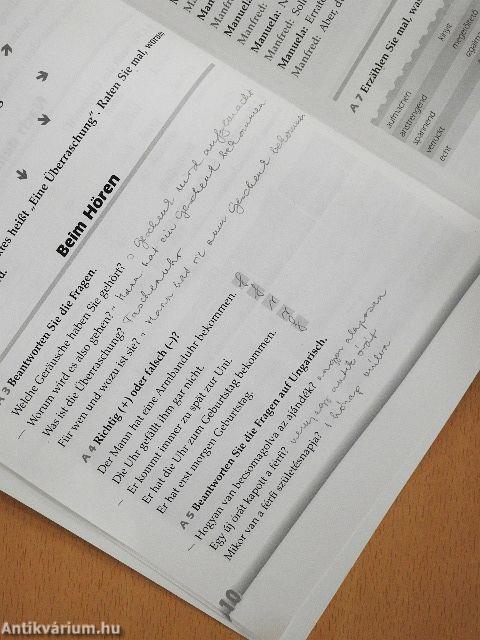 Manfred:
Manuela:
Manfred:
Manuela:
Manfred: Sol
Manuela: Errate
Manfred: Aber, d
A 7 Erzählen Sie mal, wa
aufmachen
anstrengend
spannend
verrückt
echt
kinyit
megerőltető
izgan
tes heißt „Eine Überraschung". Raten Sie mal, worum
Beim Hören
A 3 Beantworten Sie die Fragen.
Welche Geräusche haben Sie gehört? Geschenk wird aufgemacht
– Worum wird es also gehen? Mann hat ein Geschenk bekommen
Was ist die Überraschung? Taschenuhr
Für wen und wozu ist sie? Mann hat zum Geschenk bekommen
A 4 Richtig (+) oder falsch (–)?
Der Mann hat eine Armbanduhr bekommen.
Die Uhr gefällt ihm gar nicht.
– Er kommt immer zu spät zur Uni.
Er hat die Uhr zum Geburtstag bekommen.
Er hat erst morgen Geburtstag.
A 5 Beantworten Sie die Fragen auf Ungarisch.
– Hogyan van becsomagolva az ajándék? nagyon alaposan
Egy új órát kapott a férfi? órát
Mikor van a férfi születésnapja? 1 hónap múlva
10
Antikvárium.hu